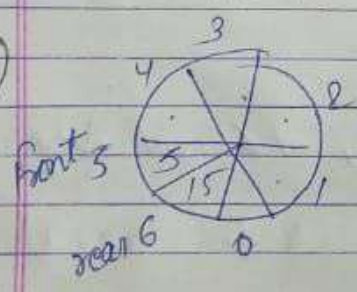 3
4
2
front 5
5
15
1
rear 6
0